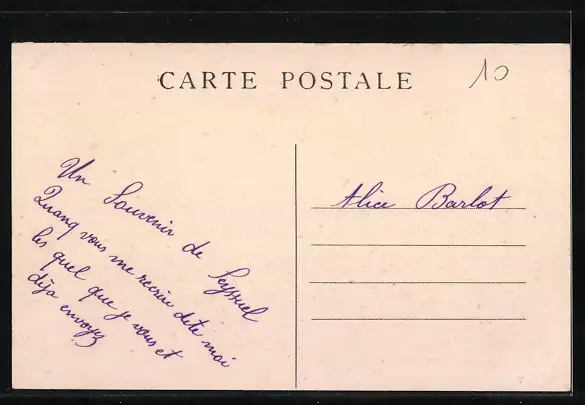 CARTE POSTALE
10
Un Souvenir de Seyssuel
Quang vous me recrire dite moi
les quel que je vous et
déja envoyez
Alice Barlot